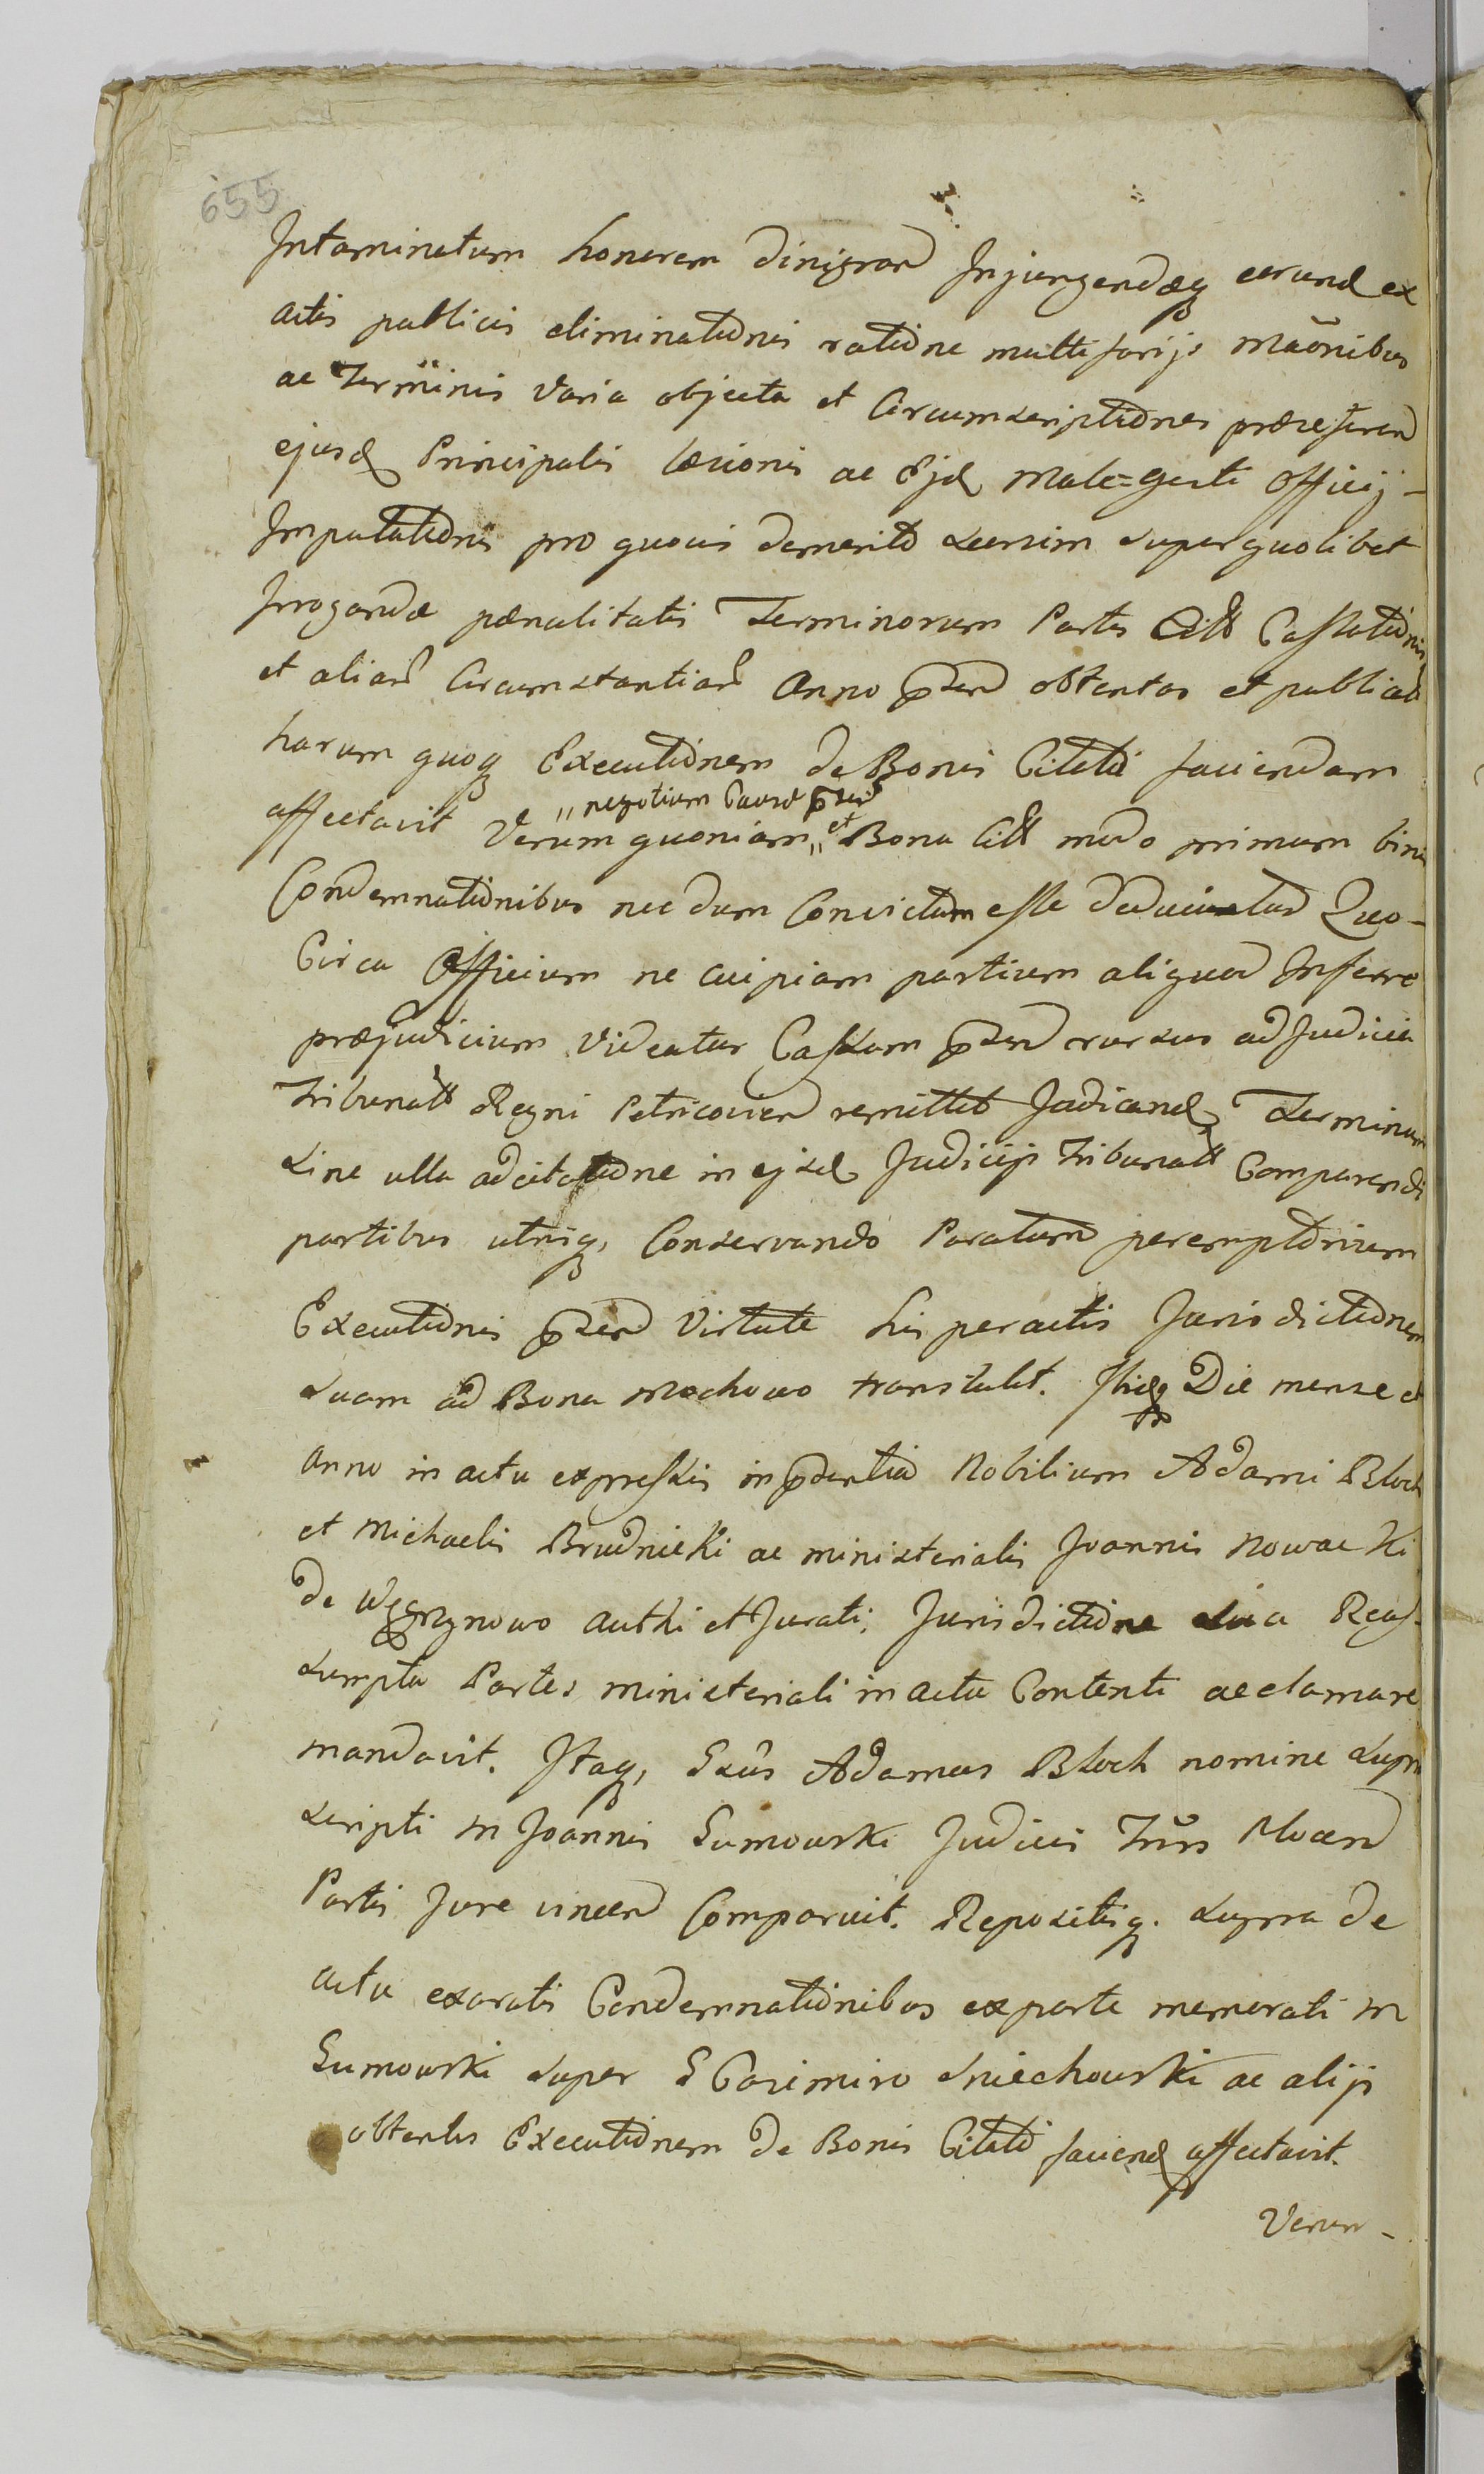 655
Intaminatum honorem dinigran Injungendæq earund ex
actis publicis eliminationis ratione multifarijs maōnibus
ac Terminis varia objecta et Circumscriptiones præreferen
ejusd Principalis læsionis ac Ejd Male=gesti Officij -
Imputationis pro quovis demerito seersim super quolibet
Irrogandæ pænalitatis Terminorum Partis Citt Cassationis
et aliar Circumstantiar Anno pnten obtentas et publicat
harum quoq Executionem de Bonis Citati faciendam
affectavit Verum quoniam "negotium Causæ pnten et" Bona Citt modo primum binis
Condemnationibus nec dum Convictum esse deducitur Quo-
Circa Officium ne cuipiam partium aliquod Inferre
præjudicium videatur Cassum pnten rursus ad Judicia
Tribunatt Regni Petricovien remittit Judicand, Terminum
sine ulla adcitatione in ejsd Judicijs Tribunatt Comparendi
partibus utrisq, Conservando Paratum peremptorium
Executionis pnten virtute his peractis Jurisdictionem
suam ad Bona Mochowo transtulit. Ibidq Die mense et
anno in actu expressis in pntentia Nobilium Adami Bloch
et Michaelis Brudnicki ac ministerialis Joannis Nowacki
de Węgrzynowo authi et Jurati, Jurisdictione sua Reas-
sumpta Partes ministeriali in actu Contenti acclamare
mandavit. Itaq, Gsūs Adamus Bloch nomine supra
scripti M Joannis Sumowski Judicis Trrs Plocen
Partis Jure vincen Comparuit. Repositisq. supra de
actu exaratis Condemnationibus ex parte memorati M
Sumowski super G Casimiro Sniechowski ac alijs
obtentis Executionem de Bonis Citati faciend affectavit.
Verum -